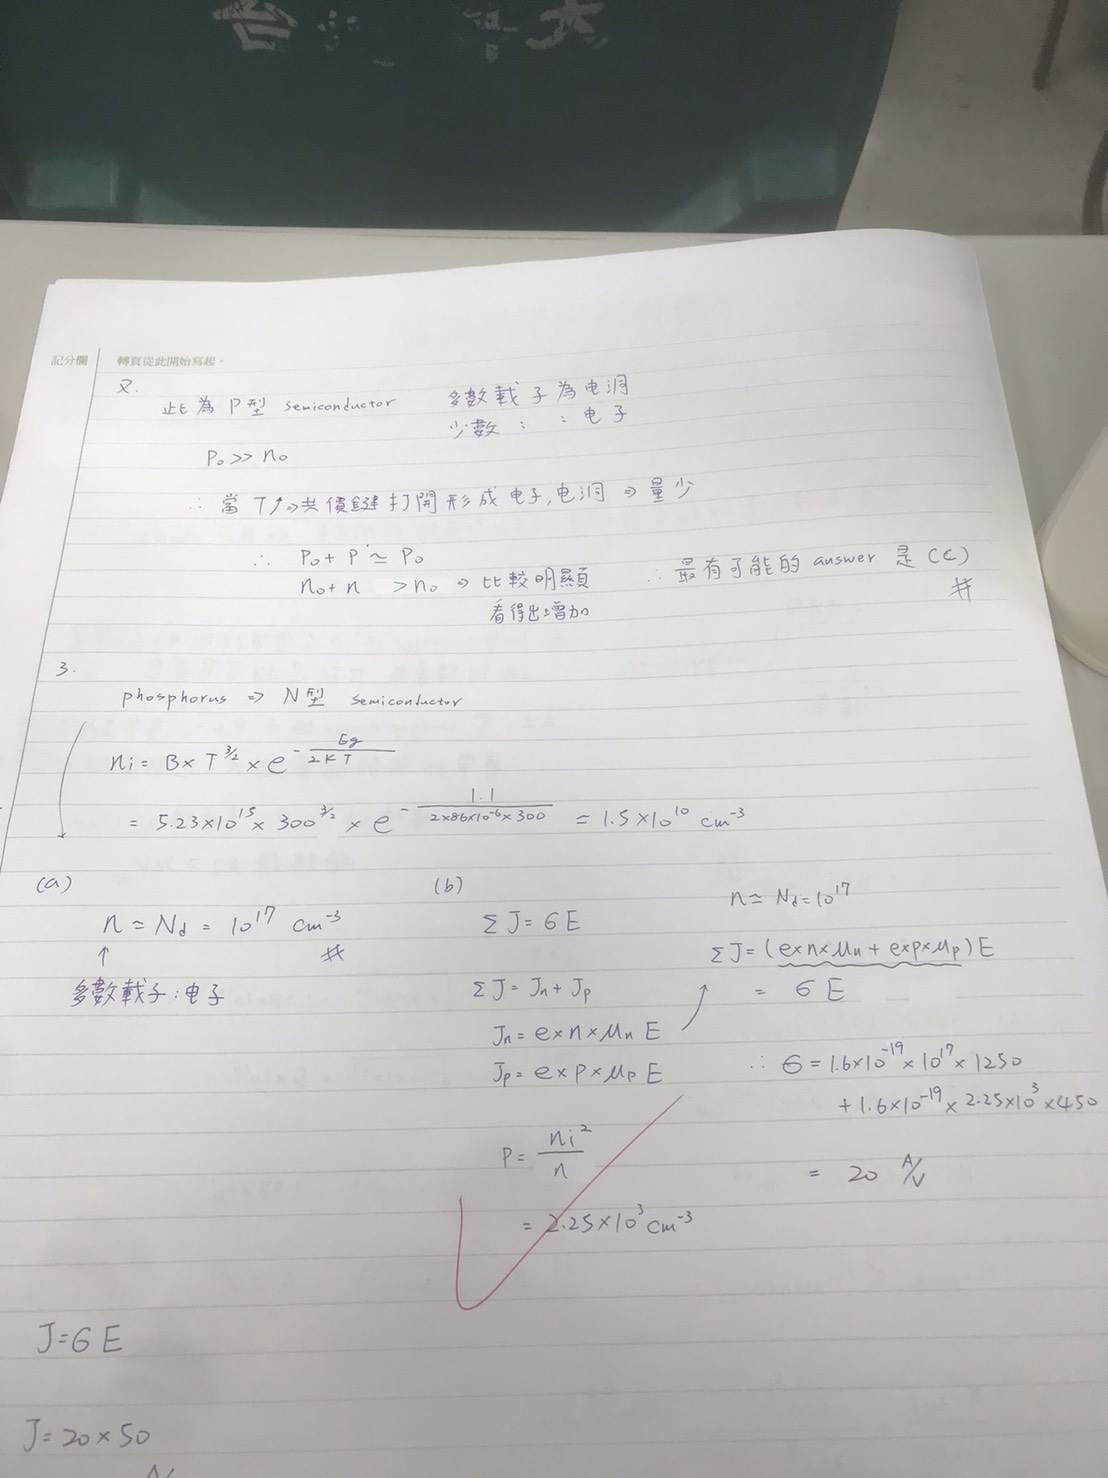 記分欄 轉頁從此開始寫起。
又.
此為 P型 semiconductor 多數載子為电洞
少數 : : 电子
P₀ >> n₀
∴ 當 T↑⇒共價鍵打開形成电子,电洞 ⇒ 量少
∴ P₀ + P ≃ P₀
n₀ + n > n₀ ⇒ 比較明顯 ∴ 最有可能的 answer 是 (C)
看得出增加 #
3.
phosphorus ⇒ N型 semiconductor
ni = B × T^3/2 × e^-Eg/2KT
= 5.23×10^15 × 300^3/2 × e^-1.1/2×86×10^-6×300 = 1.5×10^10 cm^-3
(a)
n ≃ Nd = 10^17 cm^-3
↑ #
多數載子:电子
(b)
ΣJ = σE
ΣJ = Jn + Jp
Jn = e×n×μn E
Jp = e×p×μp E
P = ni²/n
= 2.25×10³ cm^-3
n ≃ Nd = 10^17
ΣJ = (e×n×μn + e×p×μp)E
= σ E
∴ σ = 1.6×10^-19 × 10^17 × 1250
+ 1.6×10^-19 × 2.25×10³ × 450
= 20 A/V
J = σ E
J = 20 × 50